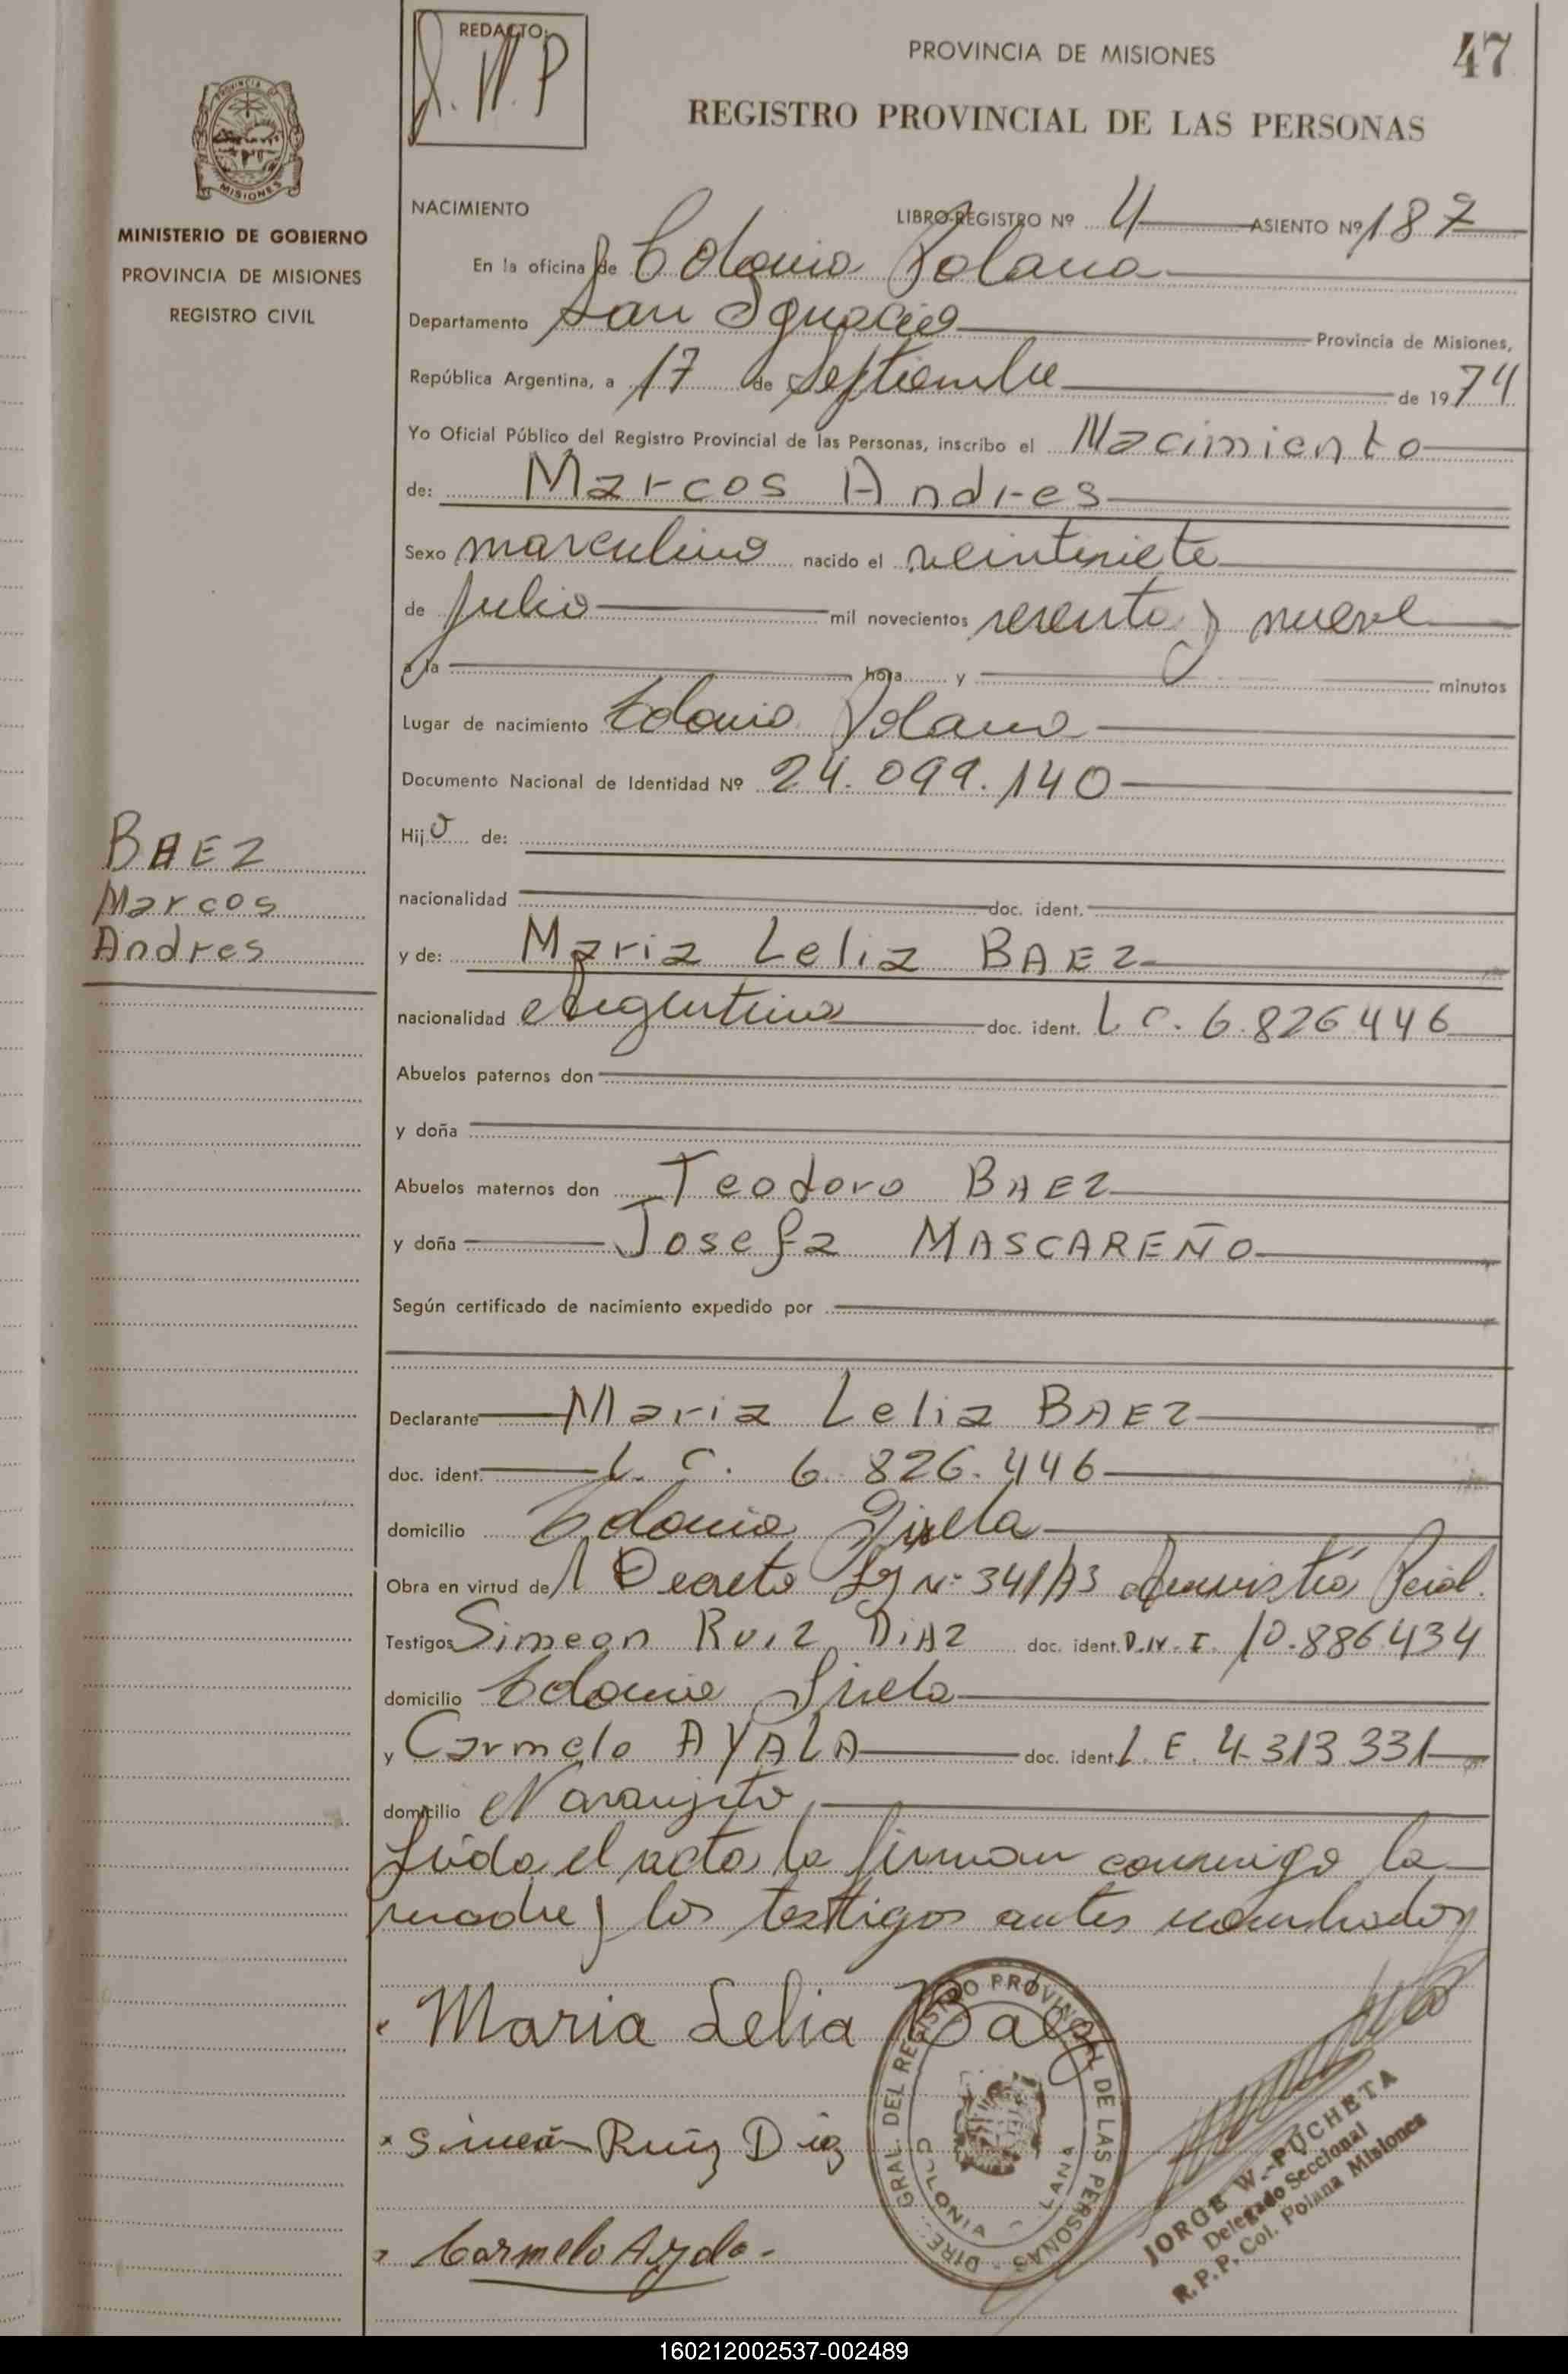 REDACTO:
J.W.P
PROVINCIA DE MISIONES
47
REGISTRO PROVINCIAL DE LAS PERSONAS
PROVINCIA DE MISIONES
MINISTERIO DE GOBIERNO
PROVINCIA DE MISIONES
REGISTRO CIVIL
NACIMIENTO LIBRO-REGISTRO Nº 4 ASIENTO Nº 187
En la oficina de Colonia Polana
Departamento San Ignacio Provincia de Misiones,
República Argentina, a 17 de Septiembre de 1974
Yo Oficial Público del Registro Provincial de las Personas, inscribo el Nacimiento
de: Marcos Andres
Sexo masculino nacido el veintisiete
de Julio mil novecientos sesenta y nueve
a la hora y minutos
Lugar de nacimiento Colonia Polana
Documento Nacional de Identidad Nº 24.099.140
Hijo de:
nacionalidad doc. ident.
BAEZ
Marcos
Andres
y de: Maria Lelia BAEZ
nacionalidad Argentina doc. ident. L.C. 6.826446
Abuelos paternos don
y doña
Abuelos maternos don Teodoro BAEZ
y doña Josefa MASCAREÑO
Según certificado de nacimiento expedido por
Declarante Maria Lelia BAEZ
doc. ident. L.C. 6.826.446
domicilio Colonia Gisela
Obra en virtud del Decreto Ley Nº 341/73 Amnistía
Testigos Simeon RUIZ DIAZ doc. ident. D.N.I. 10.886.434
domicilio Colonia Gisela
y Carmelo AYALA doc. ident L.E. 4.313.331
domicilio Naranjito
Leida el acta la firman conmigo la
madre y los testigos antes nombrados
Maria Lelia Baez
Simeón Ruiz Diaz
Carmelo Ayala
DIREC. GRAL. DEL REGISTRO PROVINCIAL DE LAS PERSONAS
COLONIA POLANA
JORGE W. PUCHETA
Delegado Seccional
R.P.P. Col. Polana Misiones
160212002537-002489